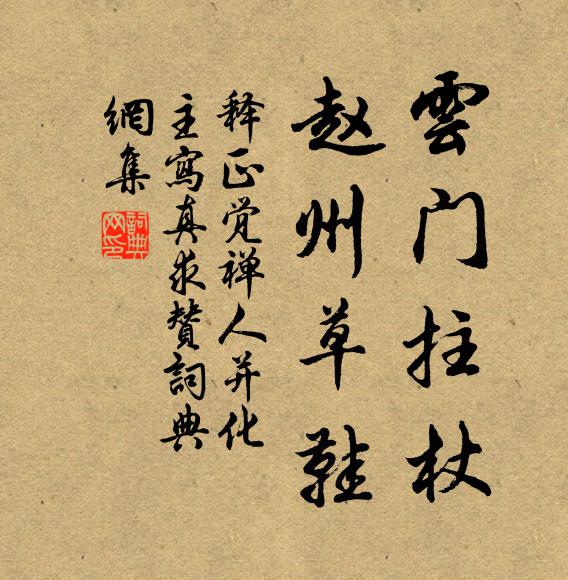 雲门拄杖
赵州草鞋
释正觉禅人并化
主寫真求赞詞典
網集
詞典网印